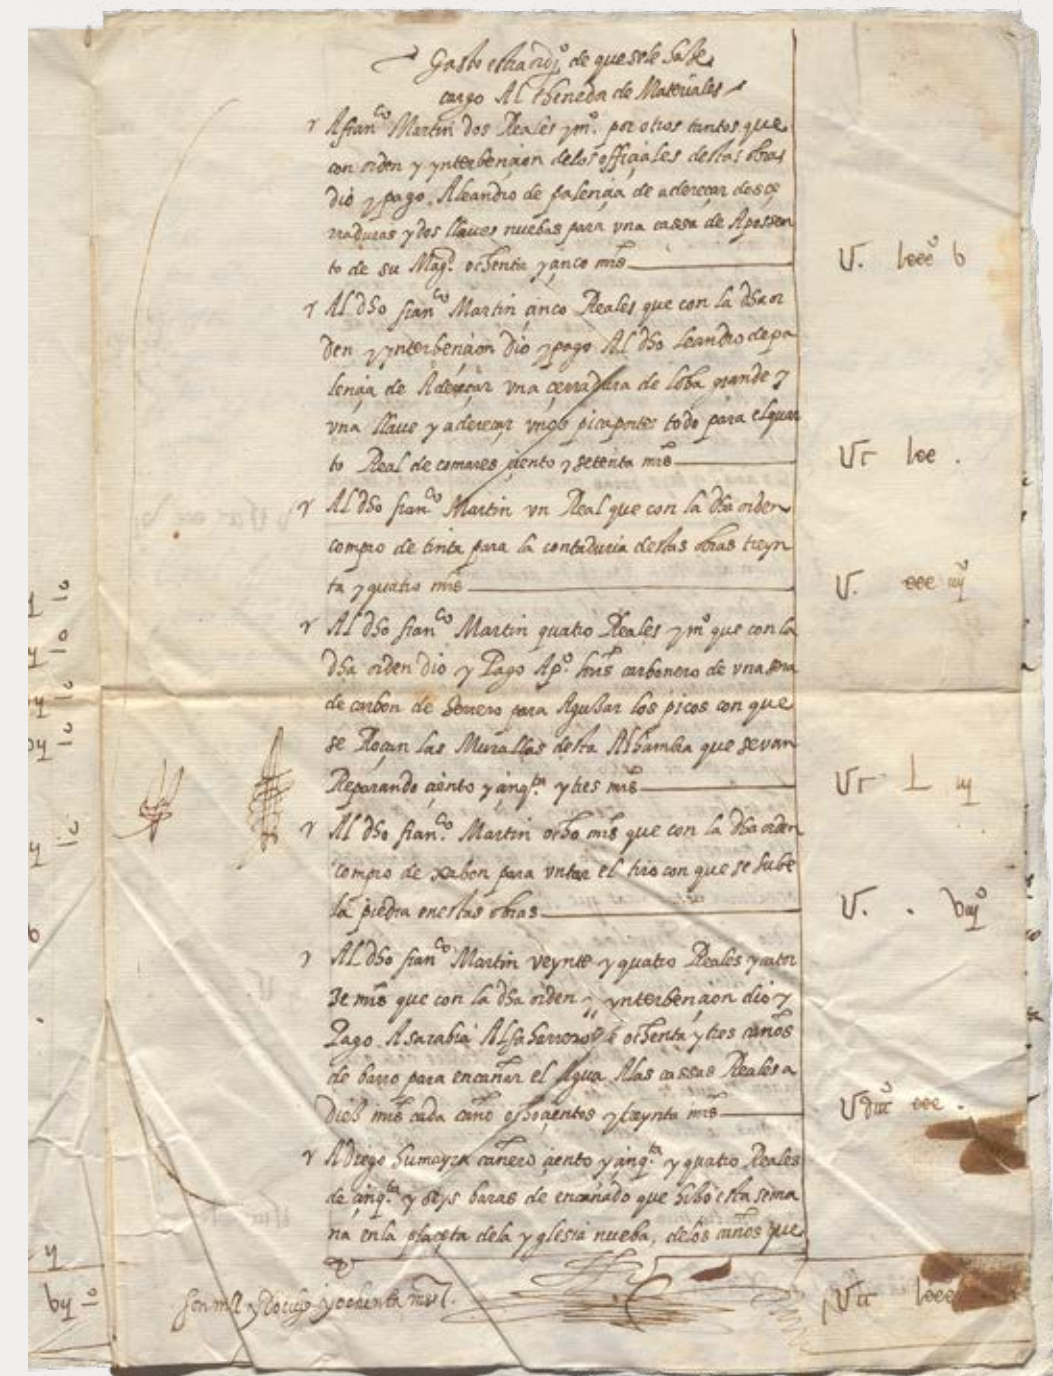 Gasto estraordi.º de que se le haze
cargo Al thenedor de Materiales
A fran.co Martin dos Reales y m.º por otros tantos que
con orden y ynterbençion de los offiçiales destas obras
dio y pago A leandro de palençia de adereçar dos çe
rraduras y dos llaues nuebas para vna cassa de Aposen
to de su Mag.d ochenta y çinco mrs
U. lxxxº b
Al dho fran.co Martin çinco Reales que con la dha or
den y ynterbençion dio y pago Al dho leandro de pa
lençia de Adereçar vna çerradura de loba grande y
vna llaue y adereçar vnos picaportes todo para el quar
to Real de comares çiento y setenta mrs
U c lxx .
Al dho fran.co Martin vn Real que con la dha orden
compro de tinta para la contaduria destas obras treyn
ta y quatro mrs
U. xxx iiijº
Al dho fran.co Martin quatro Reales y m.º que con la
dha orden dio y Pago A p.º carbonero de vna sera
de carbon de herrero para Aguzar los picos con que
se Roçan las Murallas desta Alhambra que se van
Reparando çiento y çinq.ta y tres mrs
U c L iij
Al dho fran.co Martin ocho mrs que con la dha orden
compro de xabon para vntar el tiro con que se sube
la piedra en estas obras
U. . biijº
Al dho fran.co Martin veynte y quatro Reales y cator
ze mrs que con la dha orden y ynterbençion dio y
Pago A sarabia Alfaharero de ochenta y tres caños
de barro para encañar el Agua A las cassas Reales a
diez mrs cada caño ochoçientos y treynta mrs
U dccc xxx .
A diego humayra cañero çiento y çinq.ta y quatro Reales
de çinq.ta y seys baras de encañado que hizo esta sema
na en la plaçeta de la yglesia nueba, de los caños que
son mil y y ochenta mrs.
U cc lxxx